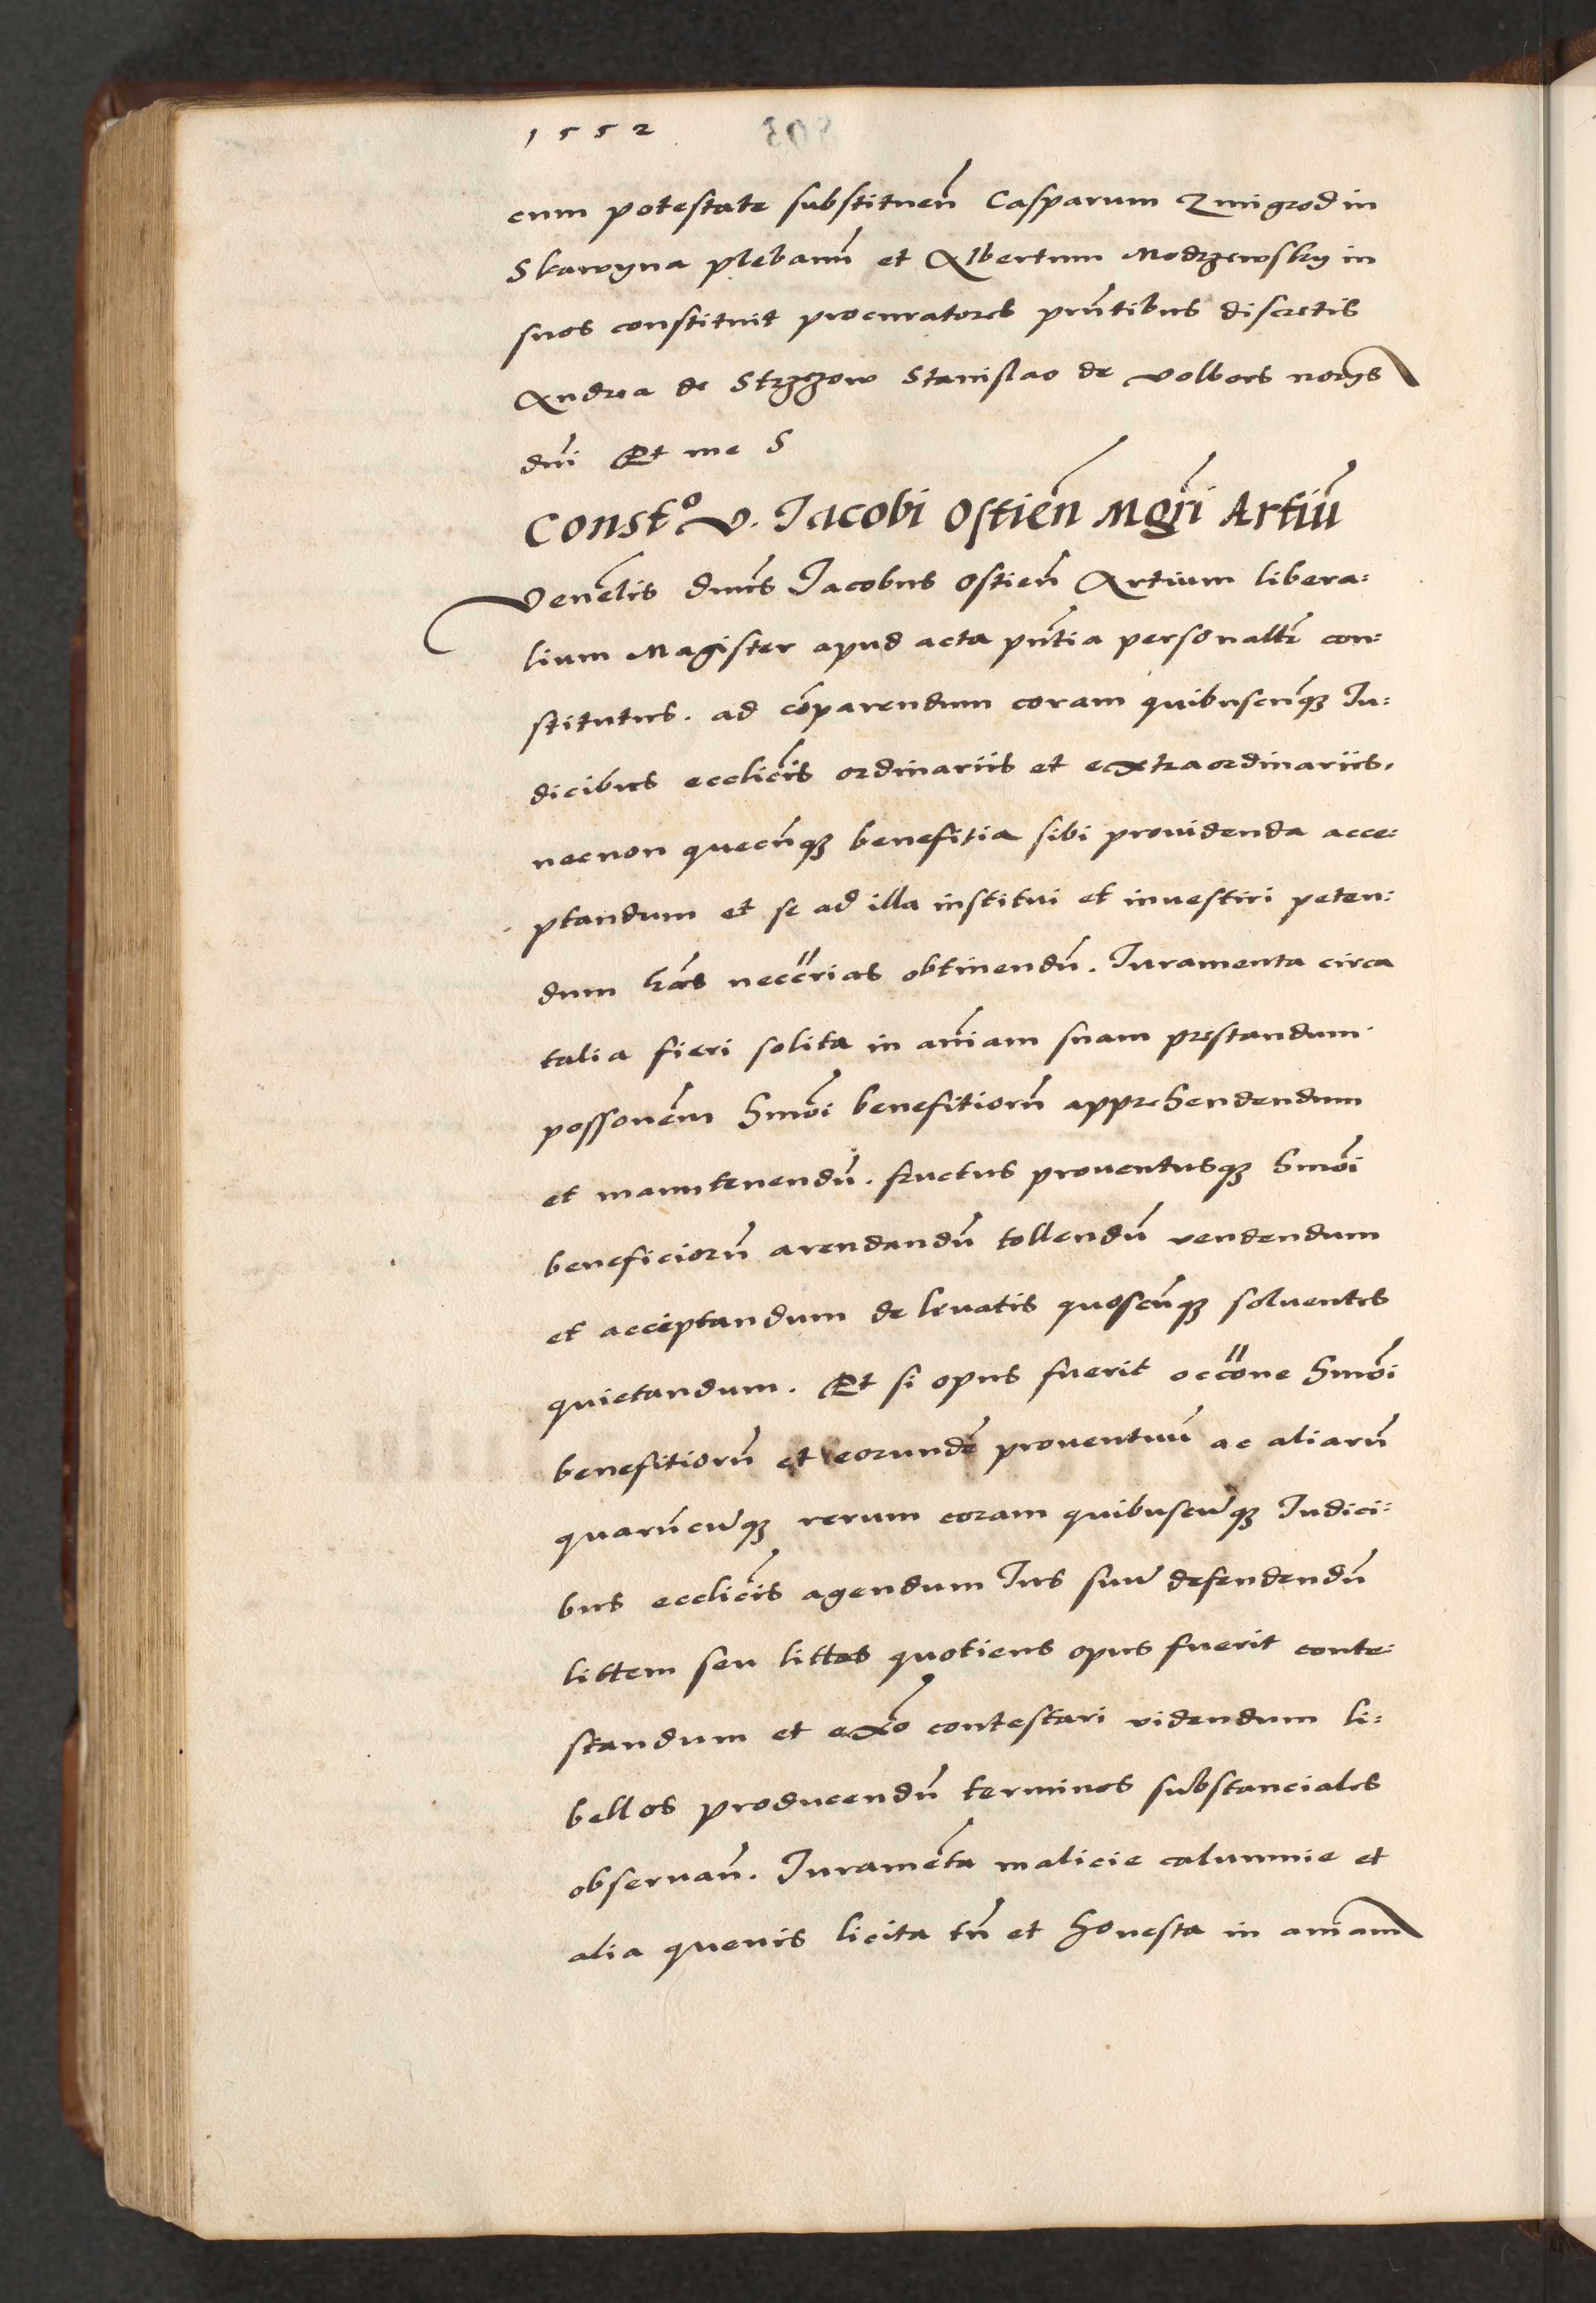 1552
cum potestate substituen̄ Casparum Zmigrod in
Skawyna pleban̄ et Albertum Modrzewsky in
suos constituit procuratores pn̄tibus discretis
Andrea de Strzyzow Stanislao de Volbors norijs
dn̄i Et me S
Constº v. Jacobi Ostien̄ Mgr̄i Artiū
Venelis̄ dnus̄ Jacobus Ostien̄ Artium libera:
lium Magister apud acta pn̄tia personalr̄ con:
stitutus. ad cōparendum coram quibuscun̄qꝫ Iu:
dicibus ecclicīs ordinariis et extraordinariis,
necnon quecun̄qꝫ benefitia sibi providenda acce:
ptandum et se ad illa institui et investiri peten:
dum lr̄as neccr̄ias obtinendū. Iuramenta circa
talia fieri solita in ani̅am suam prestandum
possonēm hmōi benefitiorū apprehendendum
et manutenendū. fructus proventusqꝫ hmōi
beneficiorū arendandū tollendū vendendum
et acceptandum de levatis quoscūqꝫ solventes
quietandum. Et si opus fuerit occōne hmōi
benefitiorū et eorundē proventuū ac aliarū
quarūcūqꝫ rerum coram quibuscūqꝫ Iudici:
bus ecclicīs agendum Ius suū defendendū
littem seu littes quotiens opus fuerit conte:
standum et exºo contestari videndum li:
bellos producendū terminos substanciales
observan̄. Iuramēta malicie calumnie et
alia quevis licita tn̄ et honesta in ani̅am